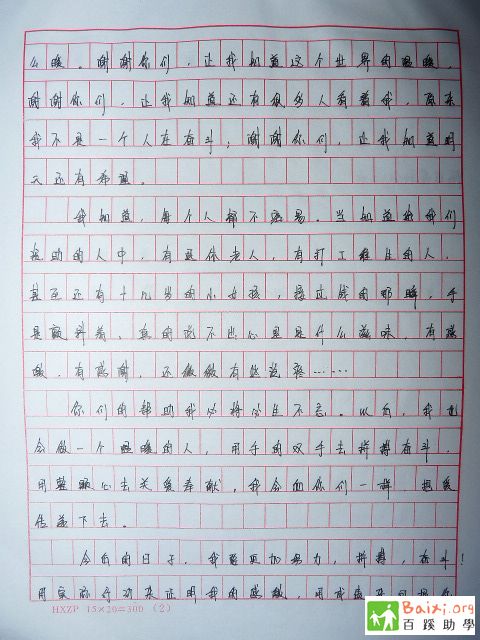 么暖。谢谢你们，让我知道这个世界的温暖，
谢谢你们，让我知道还有很多人看着我，原来
我不是一个人在奋斗；谢谢你们，让我知道明
天还有希望。
我知道，每个人都不容易。当知道给我们
援助的人中，有退休老人，有打工维生的人，
甚至还有十几岁的小女孩，接过钱的那瞬，手
是颤抖着，真的说不出心里是什么滋味，有感
激，有感谢，还微微有些沉重……
你们的帮助我必将终生不忘。以后，我也
会做一个温暖的人，用手的双手去拼搏奋斗，
用整颗心去关爱奉献，我会向你们一样 把爱
传递下去。
今后的日子，我要更加努力，拼搏，奋斗！
用实际行动来证明我的感激，用成绩来回报你
HXZP 15×20=300 (2)
Baixi.org
百蹊助學